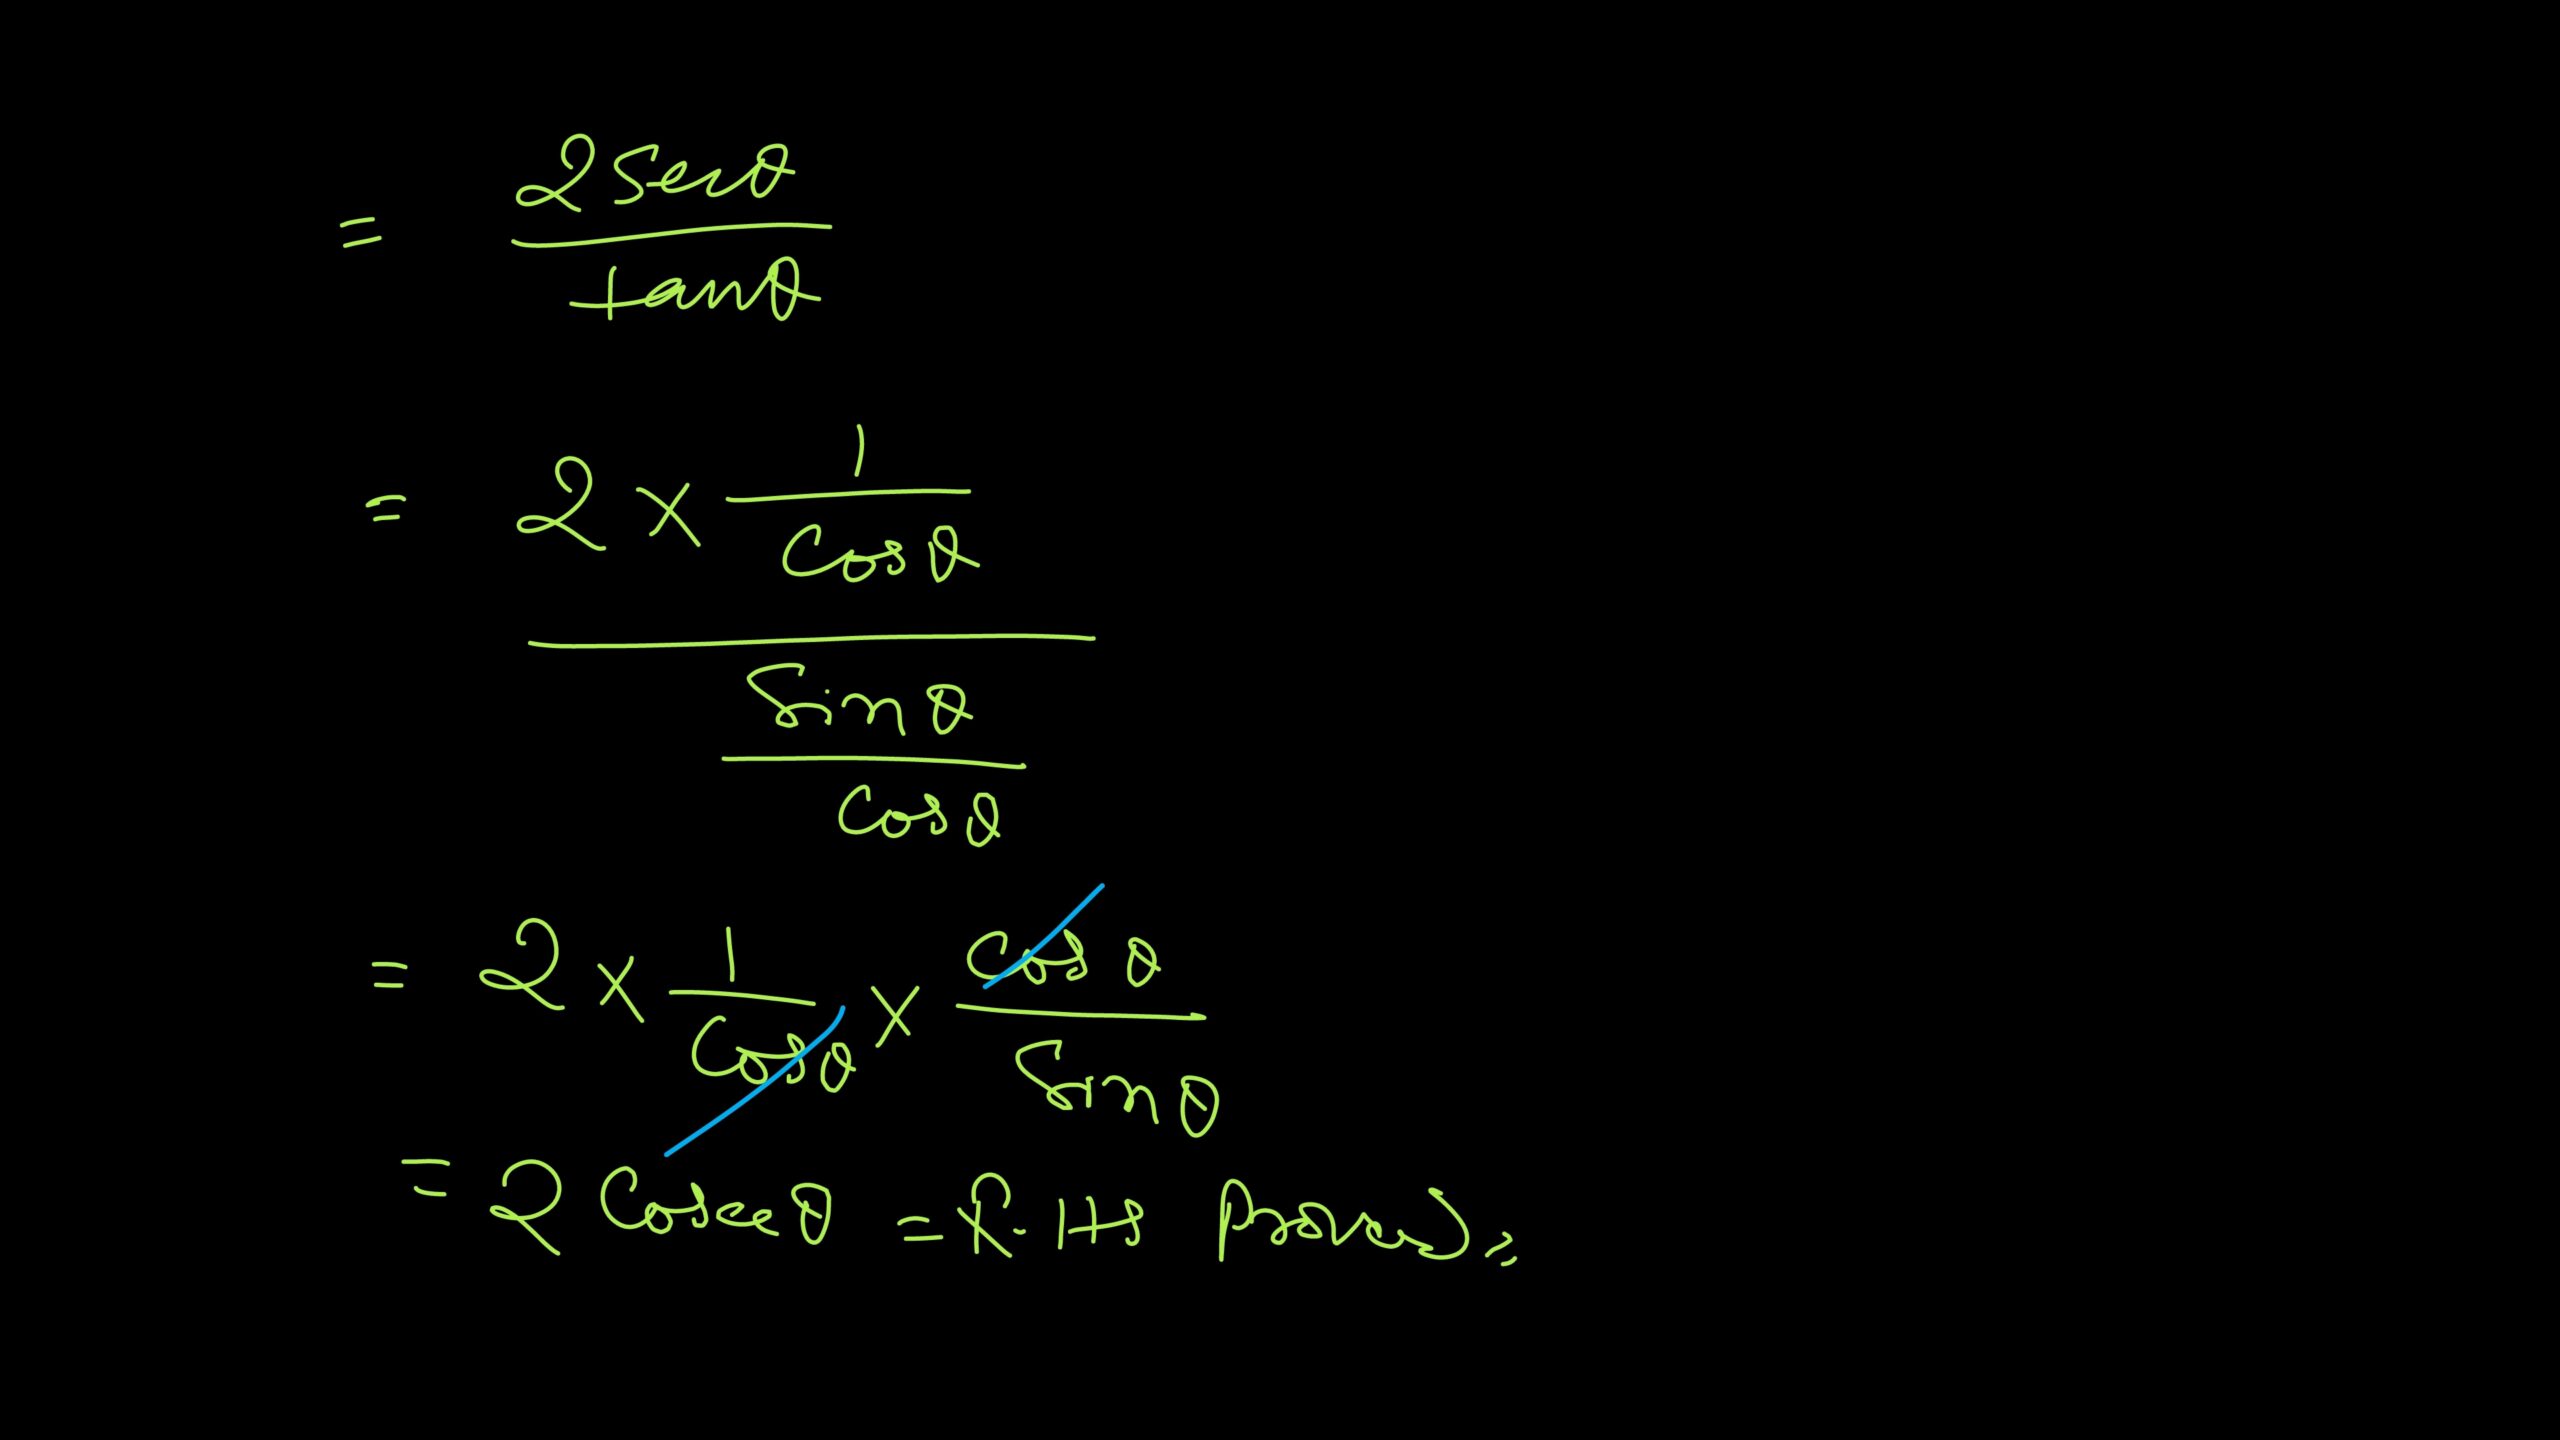 = 2 Secθ
tanθ
= 2 × 1
Cosθ
Sinθ
Cosθ
= 2 × 1/Cosθ × Cosθ/Sinθ
= 2 Cosecθ = R.HS Proved